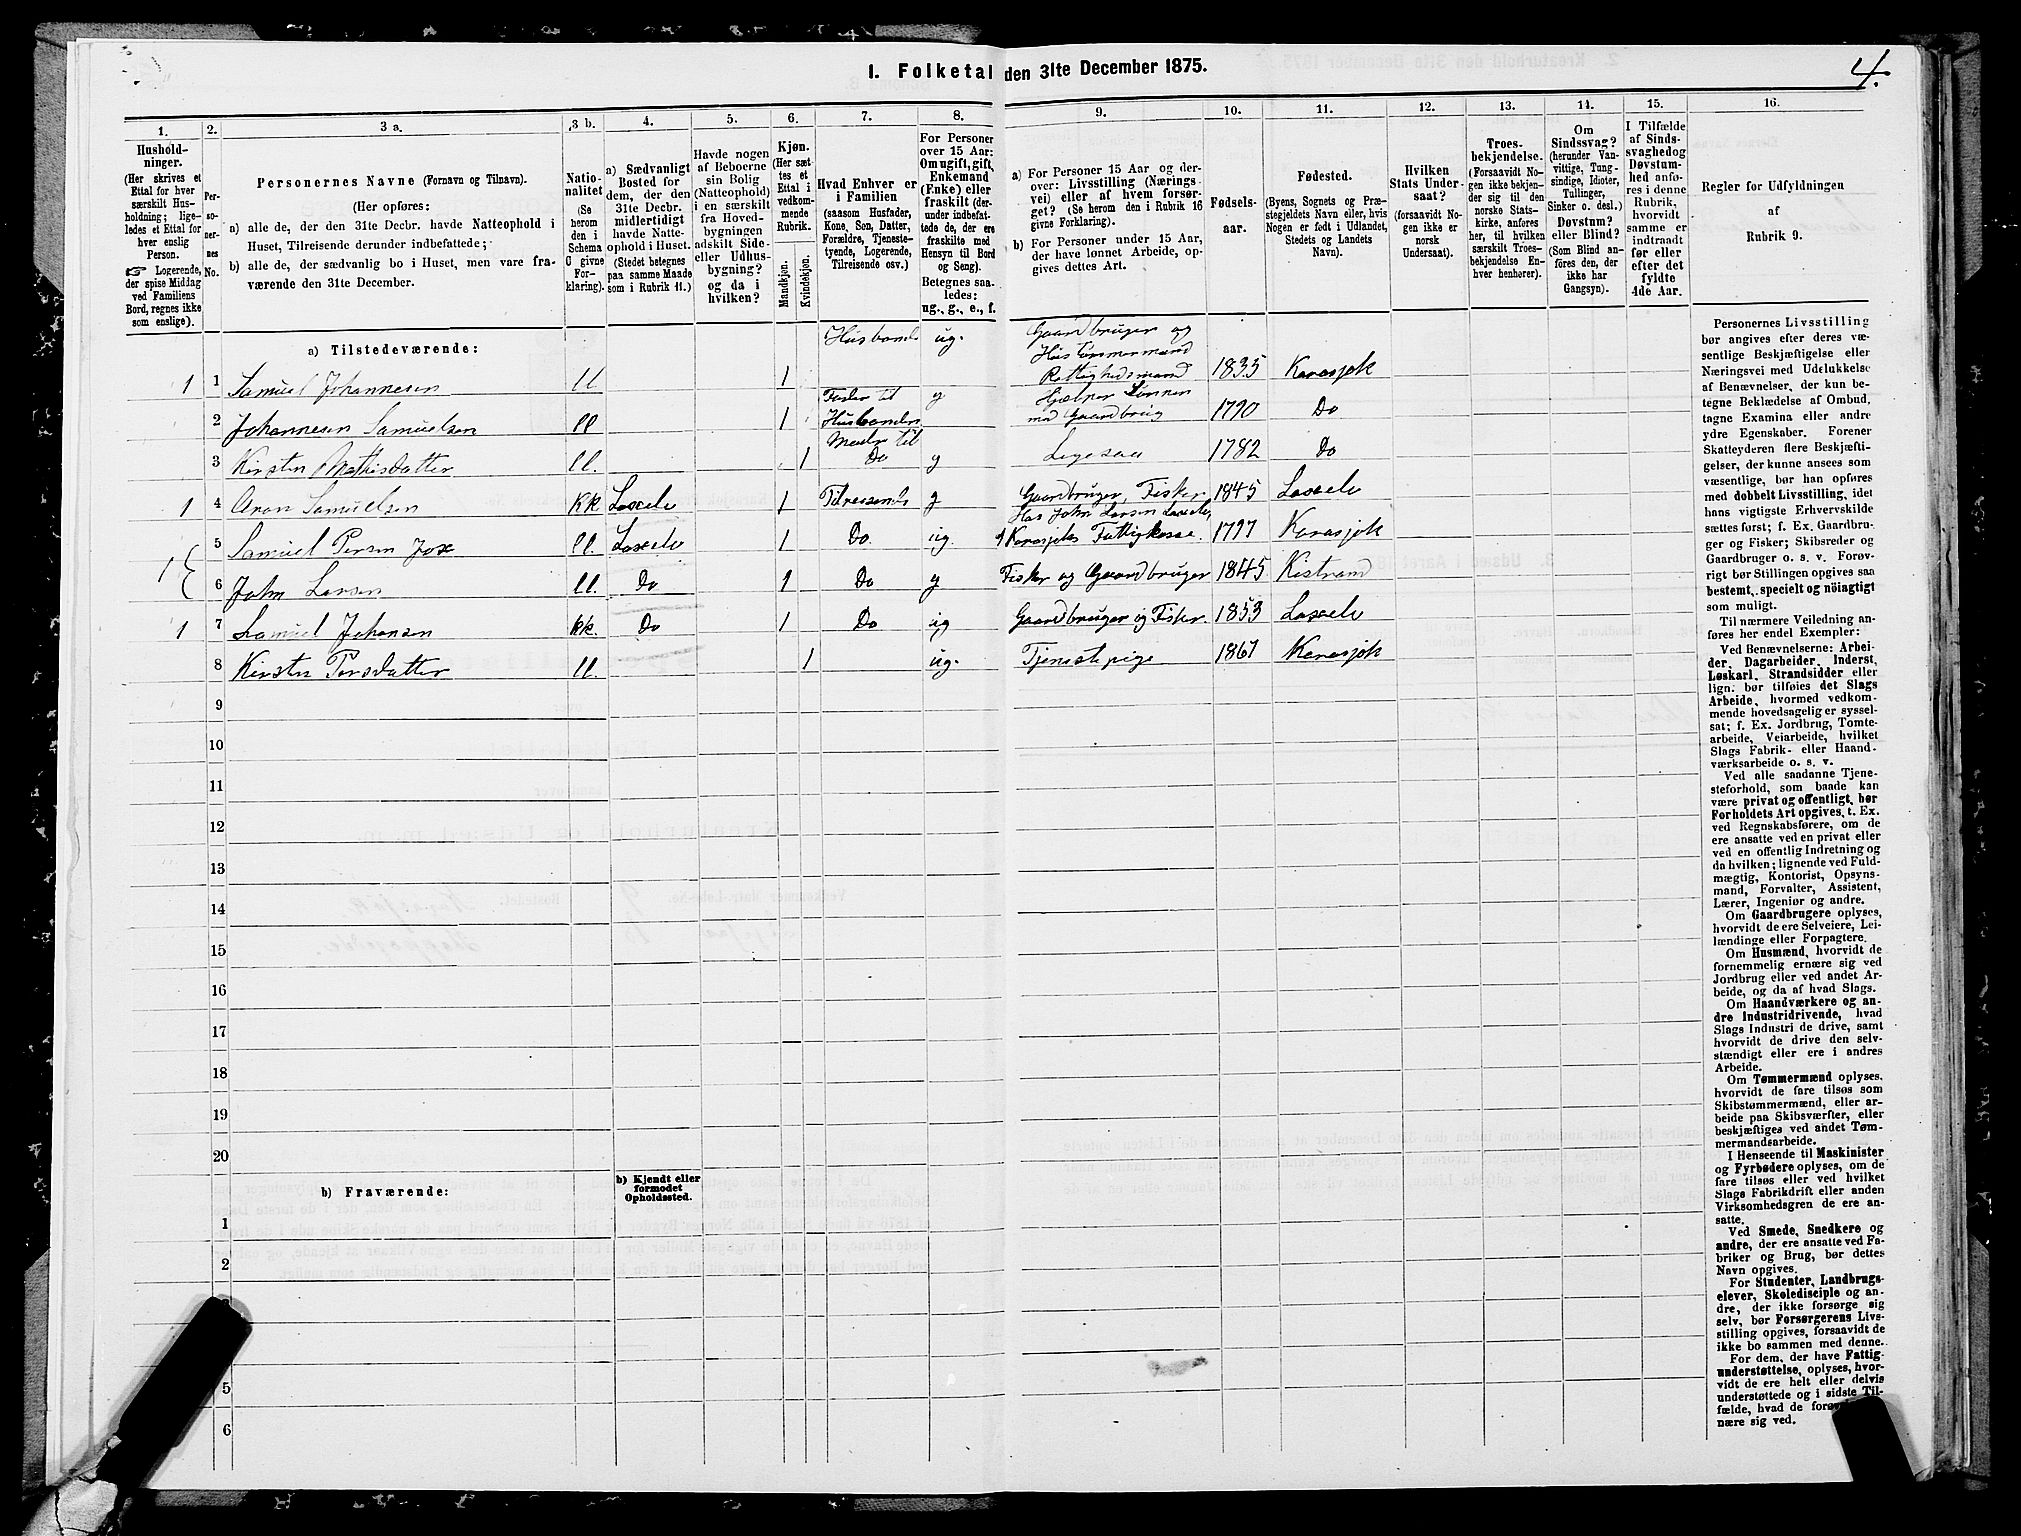 4.
I. Folketal den 31te December 1875.
1. 2. 3 a. 3 b. 4. 5. 6. 7. 8. 9. 10. 11. 12. 13. 14. 15. 16.
Hushold-
ninger.
(Her skrives et
Ettal for hver
særskilt Hus-
holdning; lige-
ledes et Ettal for
hver enslig
Person.
☞ Logerende,
der spise Middag
ved Familiens
Bord, regnes ikke
som enslige).
Per-
so-
ner-
nes
No.
Personernes Navne (Fornavn og Tilnavn).
(Her opføres:
a) alle de, der den 31te Decbr. havde Natteophold i
Huset, Tilreisende derunder indbefattede;
b) alle de, der sædvanlig bo i Huset, men vare fra-
værende den 31te December.
Natio-
nalitet
(Se
herom
den i
Schema
C givne
For-
klaring).
a) Sædvanligt
Bosted for
dem, der den
31te Decbr.
midlertidigt
havde Natte-
ophold i Huset.
(Stedet betegnes
paa samme Maade
som i Rubrik 11.)
Havde nogen
af Beboerne
sin Bolig
(Natteophold)
i en særskilt
fra Hoved-
bygningen
adskilt Side-
eller Udhus-
bygning?
og da i
hvilken?
Kjøn.
(Her sæt-
tes et
Ettal i
vedkom-
mende
Rubrik.
Mandkjøn.
Kvindekjøn.
Hvad Enhver er
i Familien
(saasom Husfader,
Kone, Søn, Datter,
Forældre, Tjeneste-
tyende, Logerende,
Tilreisende osv.)
For Personer
over 15 Aar:
Om ugift, gift,
Enkemand
(Enke) eller
fraskilt (der-
under indbefat-
tede de, der ere
fraskilte med
Hensyn til Bord
og Seng).
Betegnes saa-
ledes:
ug., g., e., f.
a) For Personer 15 Aar og der-
over: Livsstilling (Nærings-
vei) eller af hvem forsør-
get? (Se herom den i Rubrik 16
givne Forklaring).
b) For Personer under 15 Aar,
der have lønnet Arbeide, op-
gives dettes Art.
Fødsels-
aar.
Fødested.
(Byens, Sognets og Præ-
stegjeldets Navn eller, hvis
Nogen er født i Udlandet,
Stedets og Landets
Navn).
Hvilken
Stats Under-
saat?
(forsaavidt No-
gen ikke er
norsk
Undersaat).
Troes-
bekjendelse.
(Forsaavidt No-
gen ikke bekjen-
der sig til den
norske Stats-
kirke, anføres
her, til hvilken
særskilt Troes-
bekjendelse En-
hver henhører).
Om
Sindssvag?
(herunder Van-
vittige, Tung-
sindige, Idioter,
Tullinger,
Sinker o. desl.)
Døvstum?
eller Blind?
(Som Blind an-
føres den, der
ikke har
Gangsyn).
I Tilfælde
af Sinds-
svaghed og
Døvstum-
hed anfø-
res i denne
Rubrik,
hvorvidt
samme er
indtraadt
før eller
efter det
fyldte
4de Aar.
Regler for Udfyldningen
af
Rubrik 9.
a) Tilstedeværende:
1 1 Samuel Johannesen ll 1 Husband ug. Gaardbruger og Hustømmermand 1835 Karasjok
2 Johannesen Samuelsen ll 1 Fader til Husbonden g Hjelper Sønnen med Gaardbrug 1790 Do
3 Kirsten Mathisdatter ll. 1 Moder til Do g Ligesaa 1782 Do
1 4 Aron Samuelsen kk Laxelv 1 Tilreisende g Gaardbruger, Fisker 1845 Laxelv
1 { 5 Samuel Persen ll. Laxelv 1 Do. ug. Hos John Larsen Laxelv, Karasjoks Fattigkasse. 1797 Karasjok
6 John Larsen ll. Do 1 Do g Fisker og Gaardbruger 1845 Kistrand
1 7 Samuel Johansen kk. Do 1 Do ug Gaardbruger og Fisker. 1853 Laxelv
8 Kirsten Persdatter ll. 1 ug. Tjenestepige 1867 Karasjok
9
10
11
12
13
14
15
16
17
18
19
20
b) Fraværende:
b) Kjendt eller
formodet
Opholdssted.
1
2
5
6
Personernes Livsstilling
bør angives efter deres væ-
sentlige Beskjæftigelse eller
Næringsvei med Udelukkelse
af Benævnelser, der kun be-
tegne Beklædelse af Ombud,
tagne Examina eller andre
ydre Egenskaber. Forener
Skatteyderen flere Beskjæfti-
gelser, der kunne ansees som
væsentlige, bør han opføres
med dobbelt Livsstilling, idet
hans vigtigste Erhvervskilde
sættes først; f. Ex. Gaardbru-
ger og Fisker; Skibsreder og
Gaardbruger o. s. v. Forøv-
rigt bør Stillingen opgives saa
bestemt, specielt og nøiagtigt
som muligt.
Til nærmere Veiledning an-
føres her endel Exempler:
Ved Benævnelserne: Arbei-
der, Dagarbeider, Inderst,
Løskarl, Strandsidder eller
lign. bør tilføies det Slags
Arbeide, hvormed vedkom-
mende hovedsagelig er syssel-
sat; f. Ex. Jordbrug, Tomte-
arbeide, Veiarbeide, hvilket
Slags Fabrik- eller Haand-
værksarbeide o. s. v.
Ved alle saadanne Tjene-
steforhold, som baade kan
være privat og offentligt, bør
Forholdets Art opgives, t. Ex.
ved Regnskabsførere, om de
ere ansatte ved en privat eller
ved en offentlig Indretning og
da hvilken; lignende ved Fuld-
mægtig, Kontorist, Opsyns-
mand, Forvalter, Assistent,
Lærer, Ingeniør og andre.
Om Gaardbrugere oplyses,
hvorvidt de ere Selveiere, Lei-
lændinge eller Forpagtere.
Om Husmænd, hvorvidt de
fornemmelig ernære sig ved
Jordbrug eller ved andet Ar-
beide, og da af hvad Slags.
Om Haandværkere og an-
dre Industridrivende, hvad
Slags Industri de drive, samt
hvorvidt de drive den selv-
stændigt eller ere i andres
Arbeide.
Om Tømmermænd oplyses,
hvorvidt de fare tilsøs som
Skibstømmermænd, eller ar-
beide paa Skibsværfter, eller
beskjæftiges ved andet Tøm-
mermandsarbeide.
I Henseende til Maskinister
og Fyrbødere oplyses, om de
fare tilsøs eller ved hvilket
Slags Fabrikdrift eller anden
Virksomhedsgren de ere an-
satte.
Ved Smede, Snedkere og
andre, der ere ansatte ved Fa-
briker og Brug, bør dettes
Navn opgives.
For Studenter, Landbrugs-
elever, Skoledisciple og an-
dre, der ikke forsørge sig
selv, bør Forsørgerens Livs-
stilling opgives, forsaavidt de
ikke bo sammen med denne.
For dem, der have Fattig-
understøttelse, oplyses, hvor-
vidt de ere helt eller delvis
understøttede og i sidste Til-
fælde, hvad de
nære sig ved.